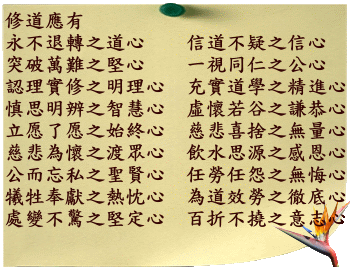 修道應有
永不退轉之道心 信道不疑之信心
突破萬難之堅心 一視同仁之公心
認理實修之明理心 充實道學之精進心
慎思明辨之智慧心 虛懷若谷之謙恭心
立愿了愿之始終心 慈悲喜捨之無量心
慈悲為懷之渡眾心 飲水思源之感恩心
公而忘私之聖賢心 任勞任怨之無悔心
犧牲奉獻之熱忱心 為道效勞之徹底心
處變不驚之堅定心 百折不撓之意志心